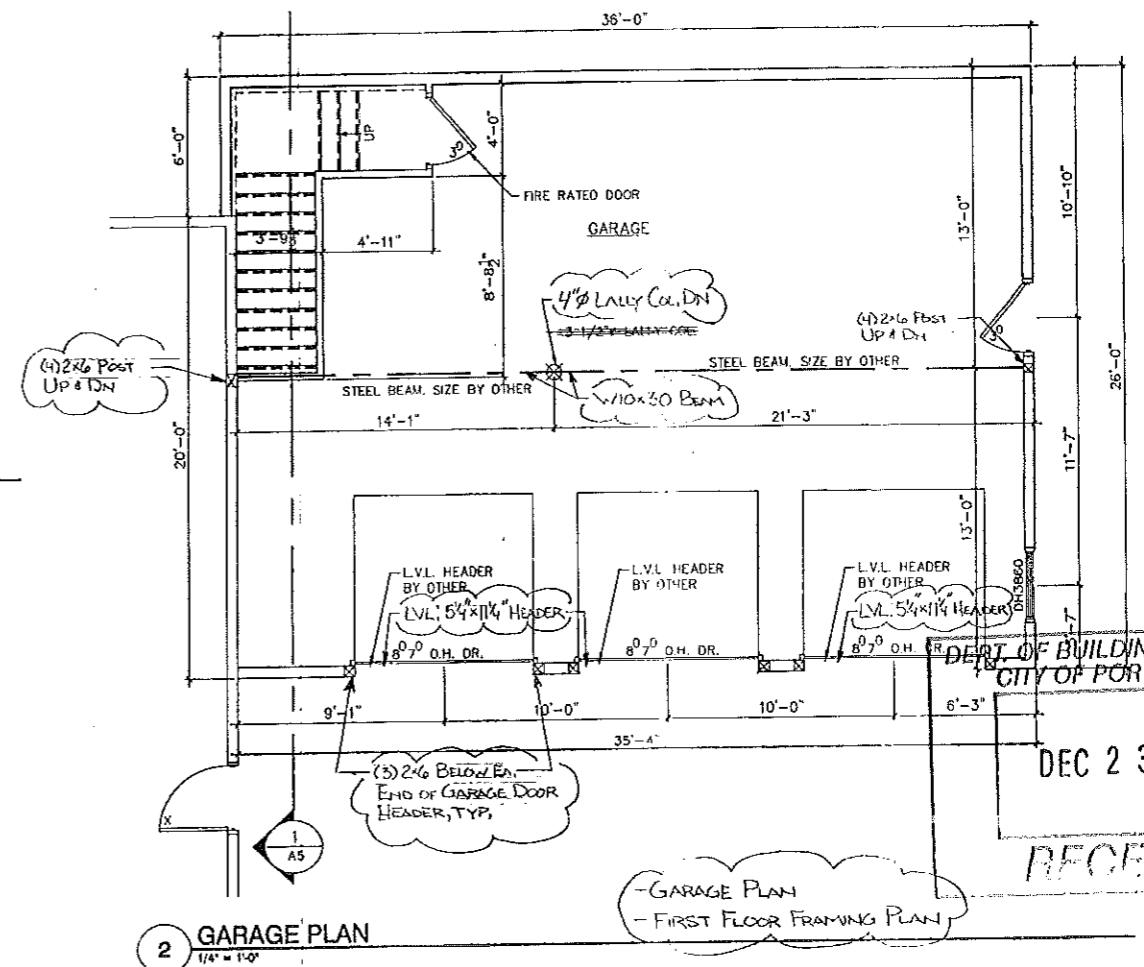 36'-0"
6'-0"
UP
4'-0"
3⁰
FIRE RATED DOOR
GARAGE
13'-0"
10'-10"
3'-9"
4'-11"
8'-8½"
4"Ø LALLY COL. DN
3-1/2"Ø LALLY COL
(4) 2x6 POST
UP & DN
3⁰
(4) 2x6 POST
UP & DN
STEEL BEAM, SIZE BY OTHER
STEEL BEAM, SIZE BY OTHER
W10x30 BEAM
26'-0"
14'-1"
21'-3"
20'-0"
11'-7"
13'-0"
L.V.L. HEADER
BY OTHER
L.V.L. HEADER
BY OTHER
L.V.L. HEADER
BY OTHER
DH3860
LVL: 5¼"x11¼" HEADER
LVL: 5¼"x11¼" HEADER
8⁰7⁰ O.H. DR.
8⁰7⁰ O.H. DR.
8⁰7⁰ O.H. DR.
DEPT. OF BUILDIN
CITY OF POR
9'-1"
10'-0"
10'-0"
6'-3"
35'-4"
DEC 2 3
(3) 2x6 BELOW EA.
END OF GARAGE DOOR
HEADER, TYP.
X
1
A5
RECE
- GARAGE PLAN
- FIRST FLOOR FRAMING PLAN
2 GARAGE PLAN
1/4" = 1'-0"